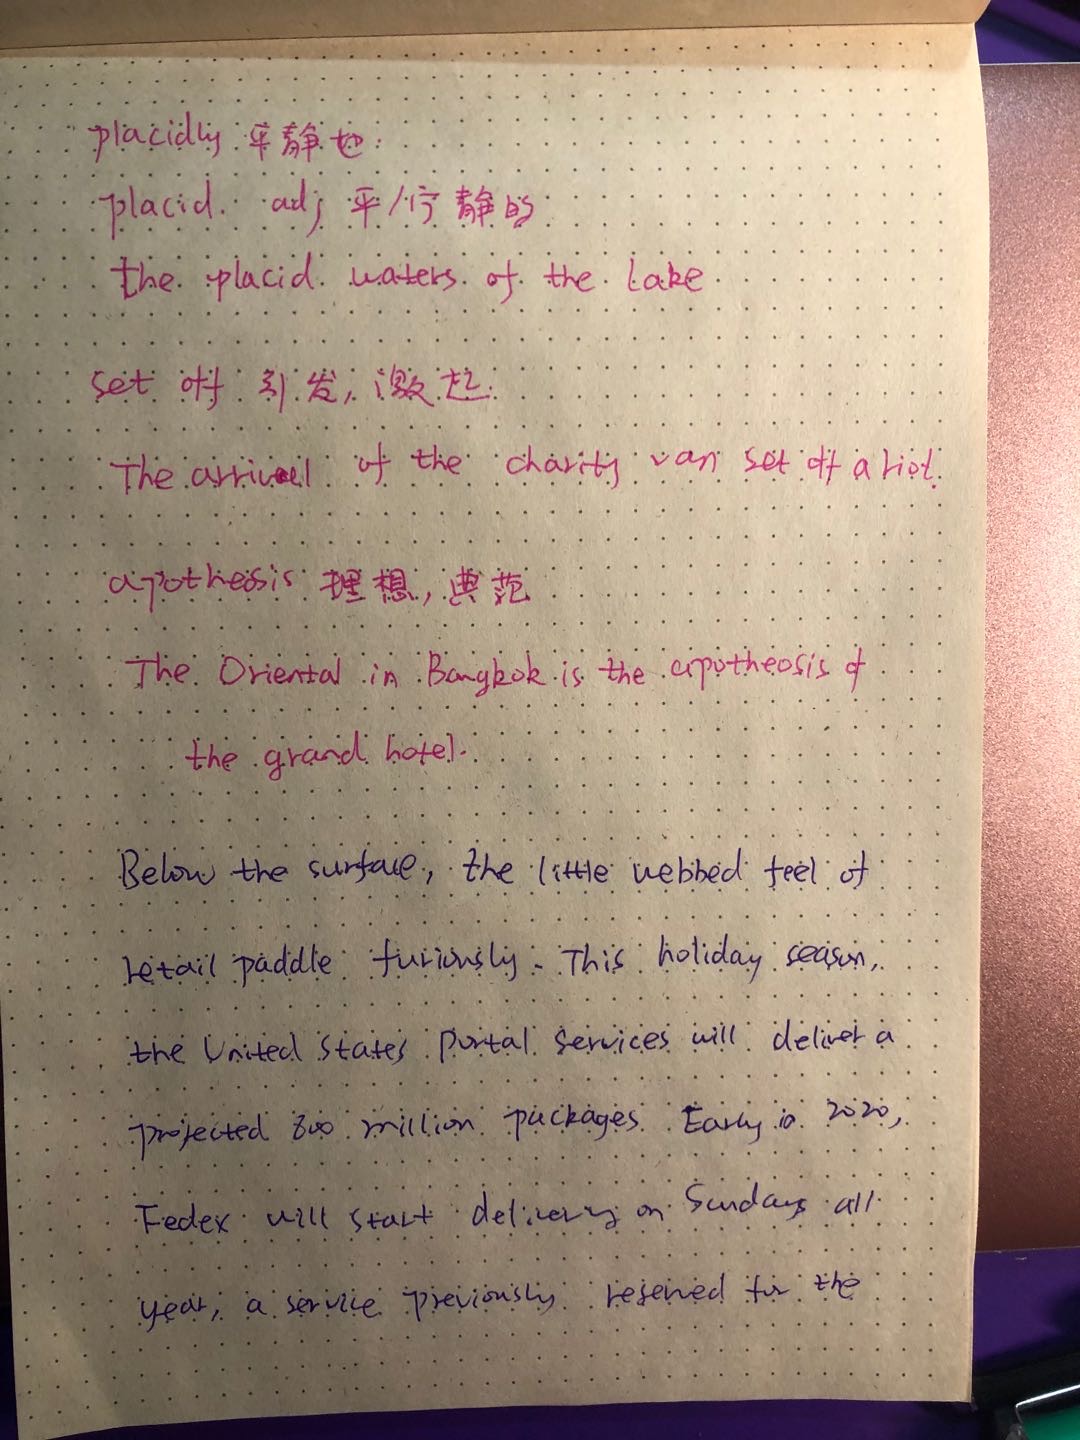 placidly 平静地
placid. adj 平/宁静的
the placid waters of the lake
set off 引发,激起
The arrival of the charity van set off a riot.
apotheosis 理想,典范
The Oriental in Bangkok is the apotheosis of
the grand hotel.
Below the surface, the little webbed feel of
retail paddle furiously. This holiday season,
the United States Portal Services will deliver a
projected 800 million packages. Early in 2020,
Fedex will start delivery on Sundays all
year, a service previously reserved for the